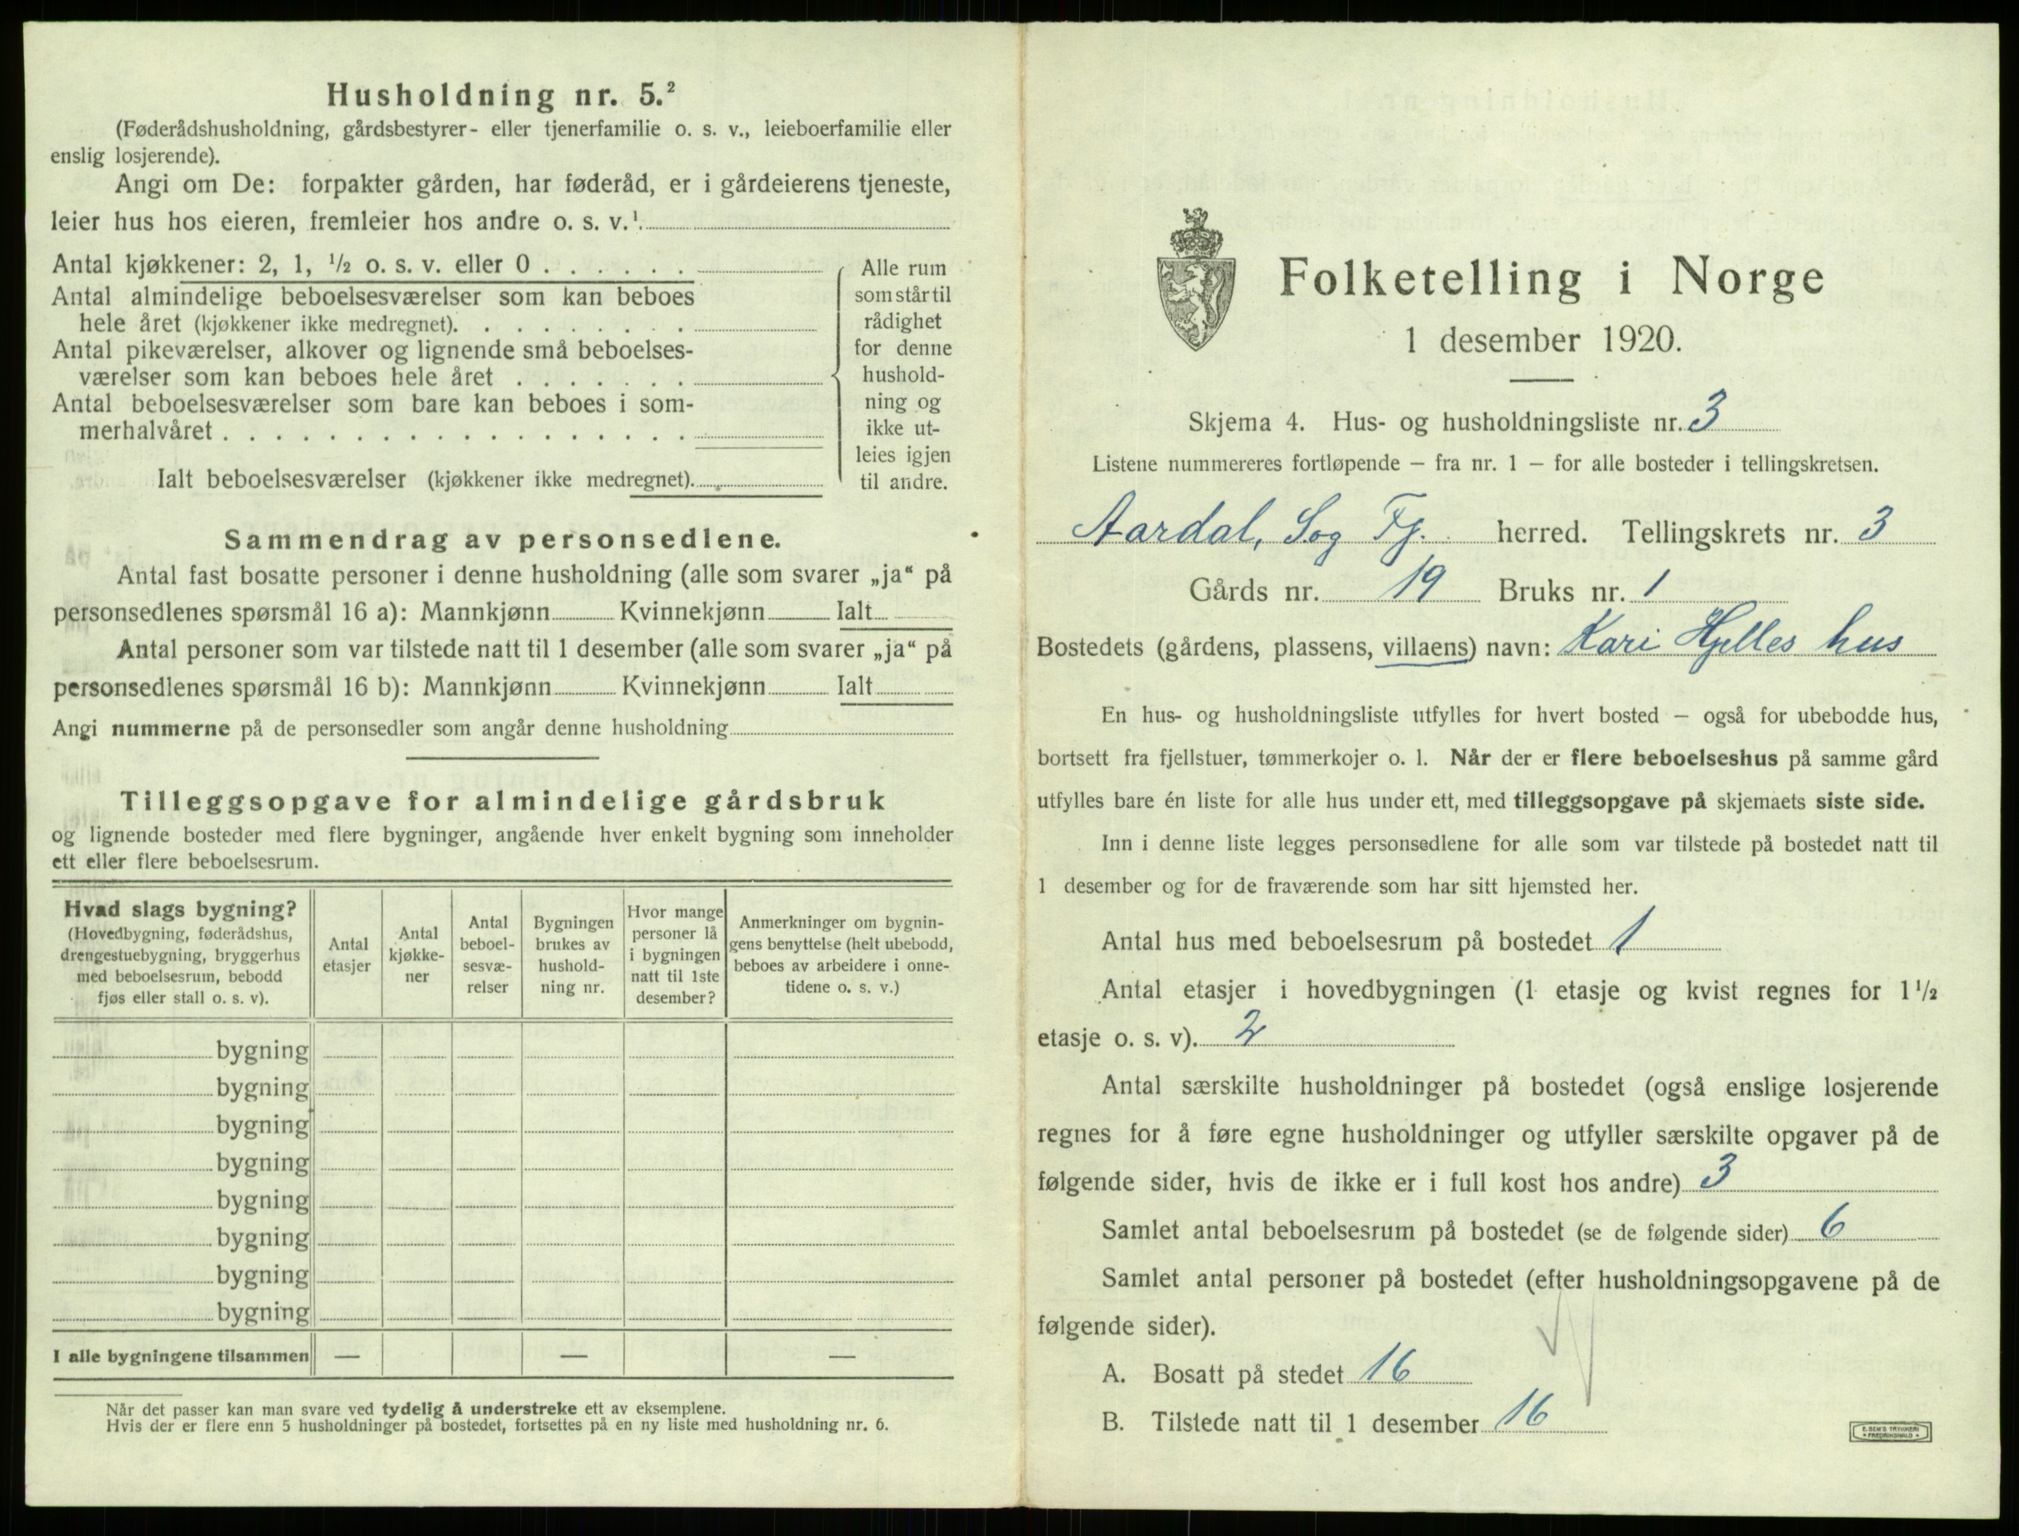 Husholdning nr. 5.²
(Føderådshusholdning, gårdsbestyrer- eller tjenerfamilie o. s. v., leieboerfamilie eller
enslig losjerende).
Angi om De: forpakter gården, har føderåd, er i gårdeierens tjeneste,
leier hus hos eieren, fremleier hos andre o. s. v.¹.
Antal kjøkkener: 2, 1, ½ o. s. v. eller 0 . . . . . .
Antal almindelige beboelsesværelser som kan beboes
hele året (kjøkkener ikke medregnet). . . . . . . . .
Antal pikeværelser, alkover og lignende små beboelses-
værelser som kan beboes hele året . . . . . . .
Antal beboelsesværelser som bare kan beboes i som-
merhalvåret . . . . . . . . . . . . . . . . . .
Ialt beboelsesværelser (kjøkkener ikke medregnet).
Alle rum
som står til
rådighet
for denne
hushold-
ning og
ikke ut-
leies igjen
til andre.
Sammendrag av personsedlene.
Antal fast bosatte personer i denne husholdning (alle som svarer „ja“ på
personsedlenes spørsmål 16 a): Mannkjønn Kvinnekjønn Ialt
Antal personer som var tilstede natt til 1 desember (alle som svarer „ja“ på
personsedlenes spørsmål 16 b): Mannkjønn Kvinnekjønn Ialt
Angi nummerne på de personsedler som angår denne husholdning
Tilleggsopgave for almindelige gårdsbruk
og lignende bosteder med flere bygninger, angående hver enkelt bygning som inneholder
ett eller flere beboelsesrum.
Hvad slags bygning?
(Hovedbygning, føderådshus,
drengestuebygning, bryggerhus
med beboelsesrum, bebodd
fjøs eller stall o. s. v).
Antal
etasjer
Antal
kjøkke-
ner
Antal
beboel-
sesvæ-
relser
Bygningen
brukes av
hushold-
ning nr.
Hvor mange
personer lå
i bygningen
natt til 1ste
desember?
Anmerkninger om bygnin-
gens benyttelse (helt ubebodd,
beboes av arbeidere i onne-
tidene o. s. v.)
bygning
bygning
bygning
bygning
bygning
bygning
bygning
bygning
I alle bygningene tilsammen — — —
Når det passer kan man svare ved tydelig å understreke ett av eksemplene.
Hvis der er flere enn 5 husholdninger på bostedet, fortsettes på en ny liste med husholdning nr. 6.
Folketelling i Norge
1 desember 1920.
Skjema 4. Hus- og husholdningsliste nr. 3
Listene nummereres fortløpende – fra nr. 1 – for alle bosteder i tellingskretsen.
Aardal, Sog Fj. herred. Tellingskrets nr. 3
Gårds nr. 19 Bruks nr. 1
Bostedets (gårdens, plassens, villaens) navn: Kari Hjelles hus
En hus- og husholdningsliste utfylles for hvert bosted – også for ubebodde hus,
bortsett fra fjellstuer, tømmerkojer o. l. Når der er flere beboelseshus på samme gård
utfylles bare én liste for alle hus under ett, med tilleggsopgave på skjemaets siste side.
Inn i denne liste legges personsedlene for alle som var tilstede på bostedet natt til
1 desember og for de fraværende som har sitt hjemsted her.
Antal hus med beboelsesrum på bostedet 1
Antal etasjer i hovedbygningen (1 etasje og kvist regnes for 1½
etasje o. s. v). 2
Antal særskilte husholdninger på bostedet (også enslige losjerende
regnes for å føre egne husholdninger og utfyller særskilte opgaver på de
følgende sider, hvis de ikke er i full kost hos andre) 3
Samlet antal beboelsesrum på bostedet (se de følgende sider) 6
Samlet antal personer på bostedet (efter husholdningsopgavene på de
følgende sider).
A. Bosatt på stedet 16
B. Tilstede natt til 1 desember 16
E. SEM'S TRYKKERI
FREDRIKSHALD